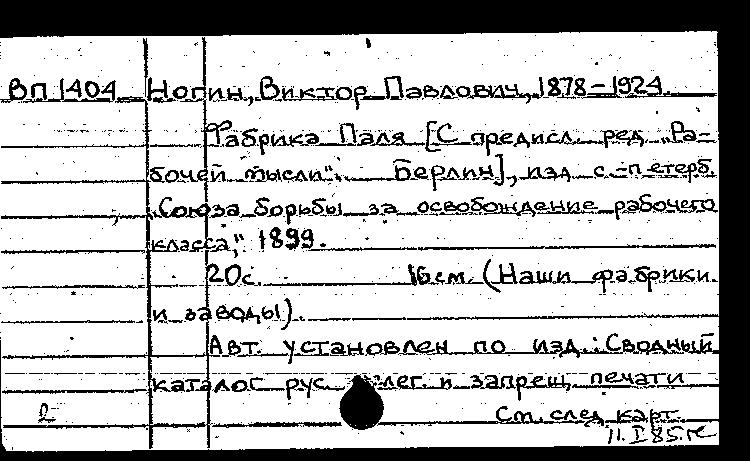 ВП 1404 Ногин, Виктор Павлович, 1878-1924.
Фабрика Паля [С предисл. ред. „Ра-
бочей мысли". Берлин], изд. с.-петерб.
„Союза борьбы за освобождение рабочего
класса", 1899.
20с. 16см. (Наши фабрики
и заводы).
Авт. установлен по изд.: Сводный
каталог рус. нелег. и запрещ. печати
2 См. след. карт.
11.I 85.